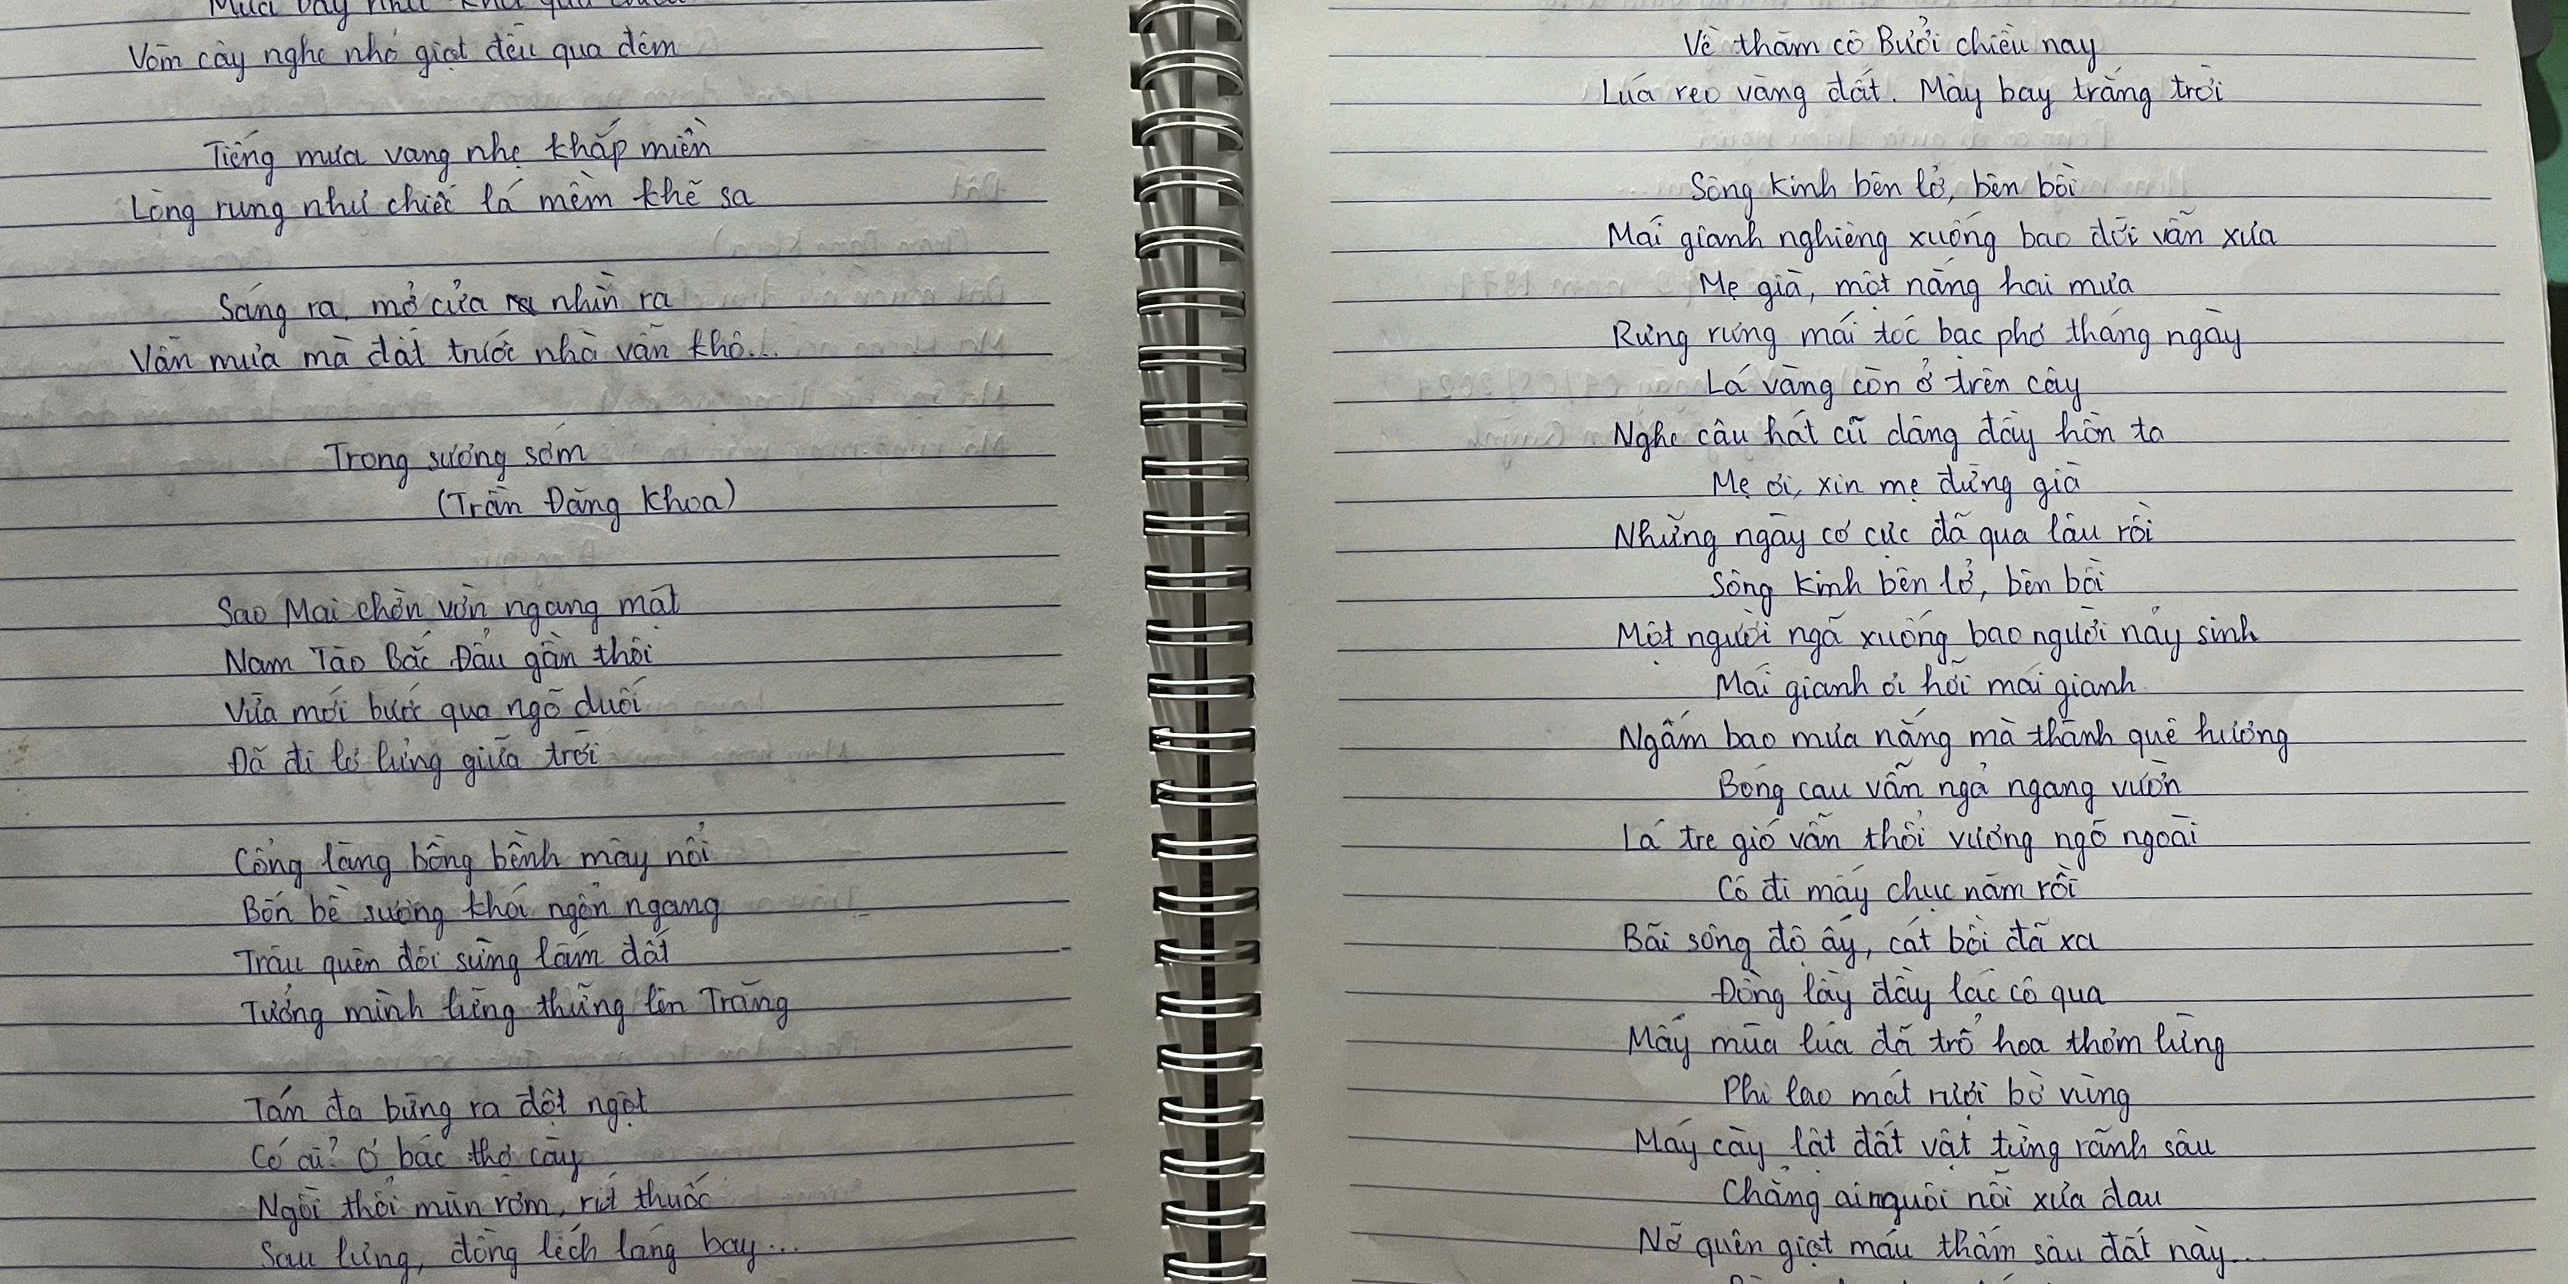 Mưa bay như khói qua chiều
Vòm cây nghe nhỏ giọt đều qua đêm
Tiếng mưa vang nhẹ khắp miền
Lòng rung như chiếc lá mềm khẽ sa
Sáng ra, mở cửa nhìn ra
Vẫn mưa mà đất trước nhà vẫn khô...
Trong sương sớm
(Trần Đăng Khoa)
Sao Mai chờn vờn ngang mặt
Nam Tào Bắc Đẩu gần thôi
Vừa mới bước qua ngõ duối
Đã đi lơ lửng giữa trời
Cổng làng bồng bềnh mây nổi
Bốn bề sương khói ngổn ngang
Trâu quên đôi sừng lấm đất
Tưởng mình lững thững lên Trăng
Tán đa bừng ra đột ngột
Có ai? Ờ bác thợ cày
Ngồi thổi mùn rơm, rít thuốc
Sau lưng, đóng lếch láng bay...
Về thăm cô Bưởi chiều nay
Lúa reo vàng đất. Mây bay trắng trời
Sông Kinh bên lở, bên bồi
Mái gianh nghiêng xuống bao đời vẫn xưa
Mẹ già, một nắng hai mưa
Rưng rưng mái tóc bạc phơ tháng ngày
Lá vàng còn ở trên cây
Nghe câu hát cũ dâng đầy hồn ta
Mẹ ơi, xin mẹ đừng già
Những ngày cơ cực đã qua lâu rồi
Sông Kinh bên lở, bên bồi
Một người ngã xuống bao người nảy sinh
Mái gianh ơi hỡi mái gianh
Ngấm bao mưa nắng mà thành quê hương
Bóng cau vẫn ngả ngang vườn
Lá tre gió vẫn thổi vương ngõ ngoài
Cô đi mấy chục năm rồi
Bãi sông độ ấy, cát bồi đã xa
Đồng lầy dạo lác cô qua
Mấy mùa lúa đã trổ hoa thơm lừng
Phi lao mát rười bờ vùng
Máy cày lật đất vật từng rãnh sâu
Chẳng ai nguôi nỗi xưa đau
Nỡ quên giọt máu thấm sâu đất này...